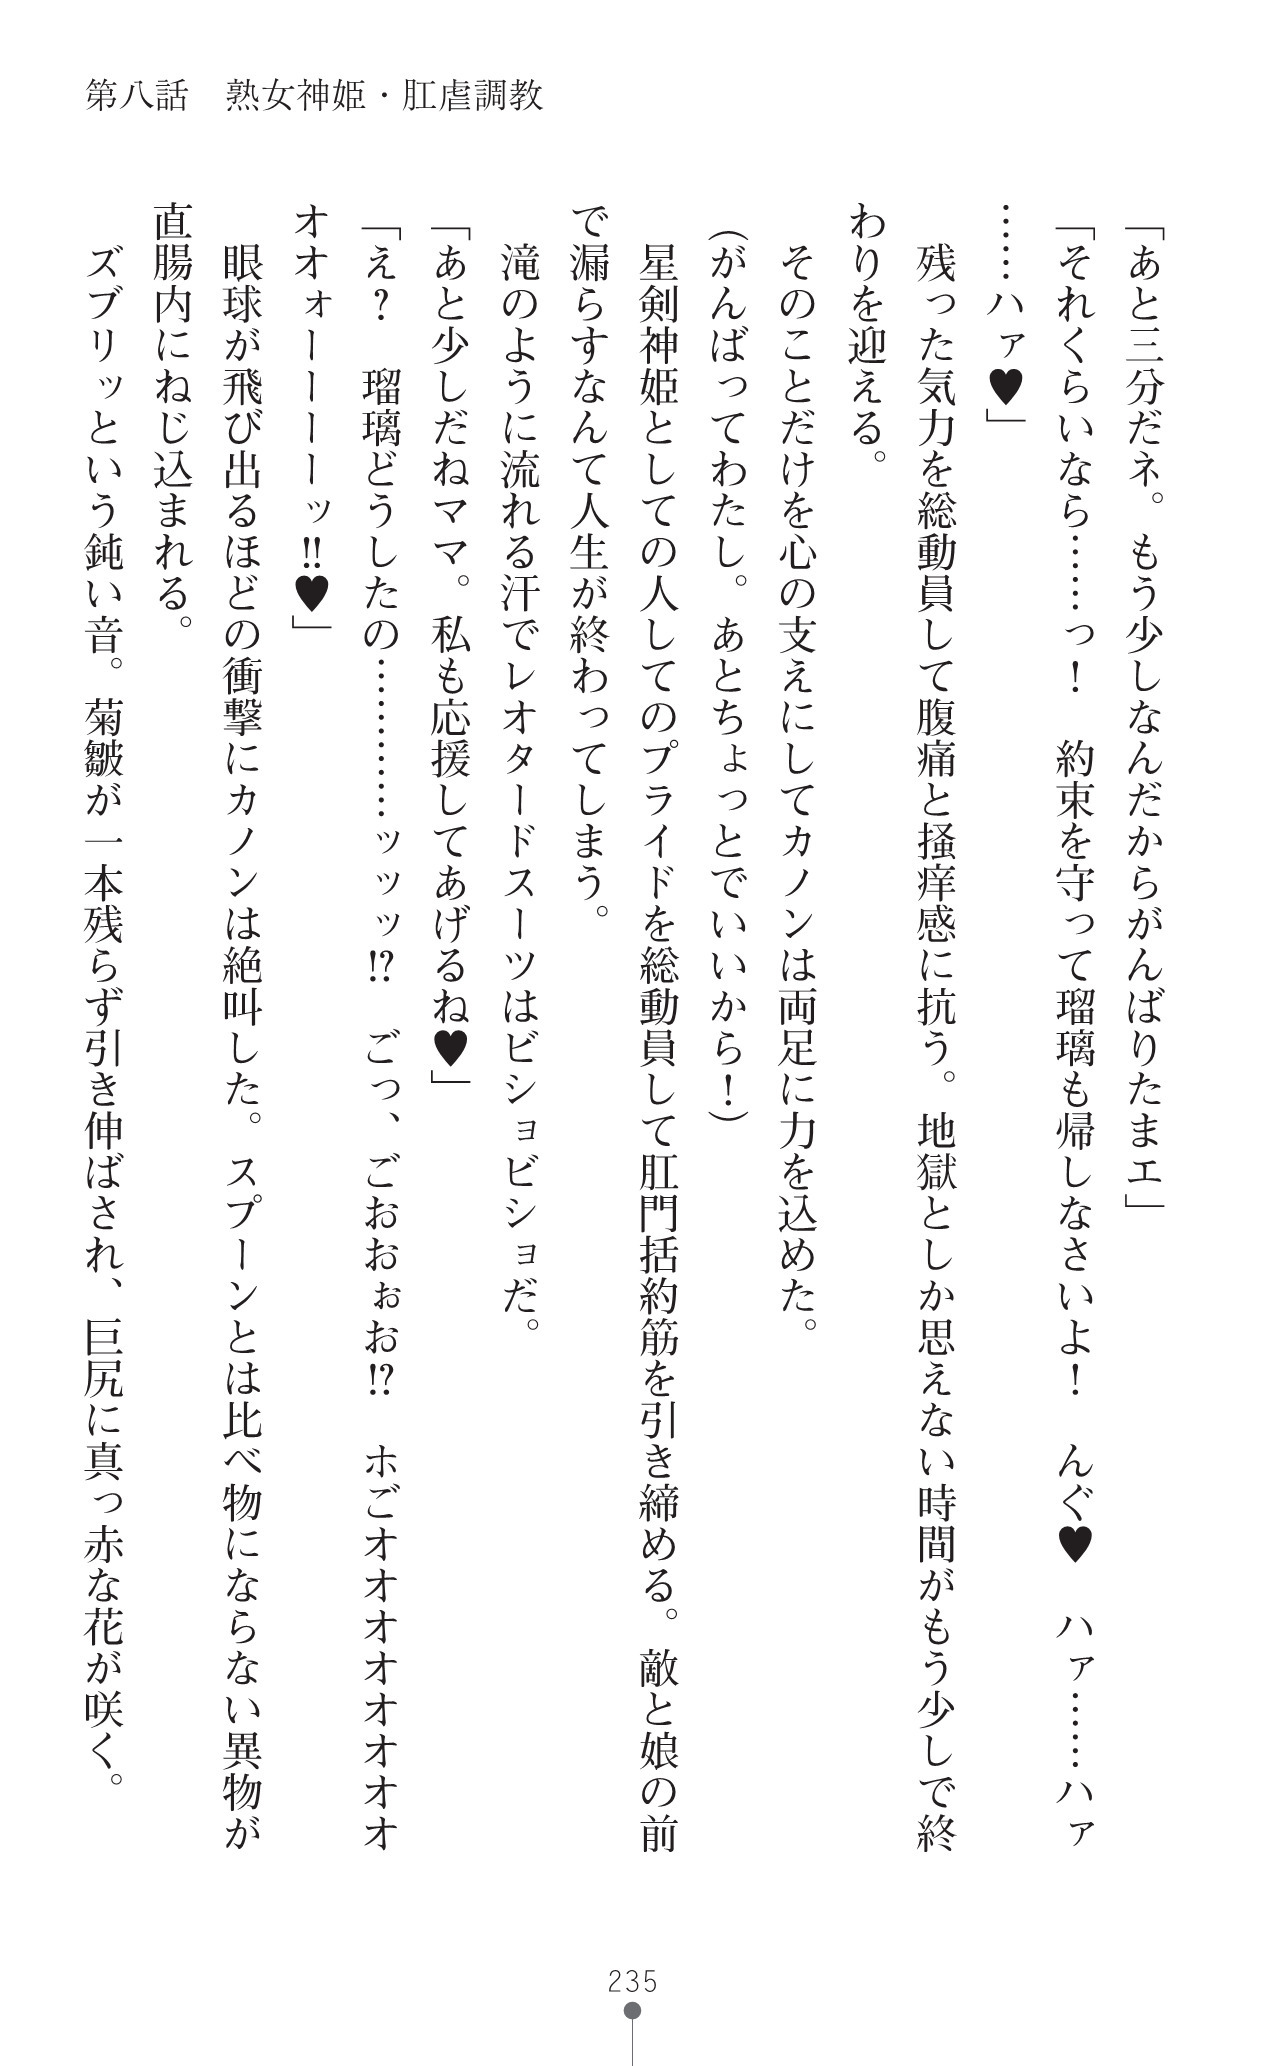 第八話　熟女神姫・肛虐調教
「あと三分だネ。もう少しなんだからがんばりたまエ」
「それくらいなら……っ！　約束を守って瑠璃も帰しなさいよ！　んぐ♥　ハァ……ハァ
……ハァ♥」
残った気力を総動員して腹痛と掻痒感に抗う。地獄としか思えない時間がもう少しで終
わりを迎える。
そのことだけを心の支えにしてカノンは両足に力を込めた。
（がんばってわたし。あとちょっとでいいから！）
星剣神姫としての人してのプライドを総動員して肛門括約筋を引き締める。敵と娘の前
で漏らすなんて人生が終わってしまう。
滝のように流れる汗でレオタードスーツはビショビショだ。
「あと少しだねママ。私も応援してあげるね♥」
「え？　瑠璃どうしたの…………ッッッ!?　ごっ、ごおおぉお!?　ホごオオオオオオオオ
オオォーーーーッ!!♥」
眼球が飛び出るほどの衝撃にカノンは絶叫した。スプーンとは比べ物にならない異物が
直腸内にねじ込まれる。
ズブリッという鈍い音。菊皺が一本残らず引き伸ばされ、巨尻に真っ赤な花が咲く。
235